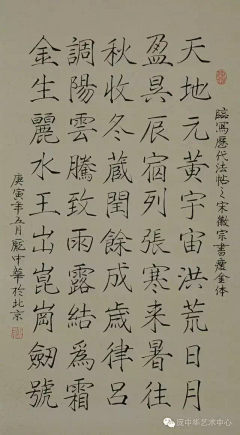 臨寫歷代法帖之宋徽宗書瘦金体
天地元黃宇宙洪荒日月
盈昃辰宿列張寒来暑往
秋收冬蔵閏餘成歲律呂
調陽雲騰致雨露結為霜
金生麗水玉出崑崗劒號
庚寅年五月龐中華於北京
庞中华艺术中心